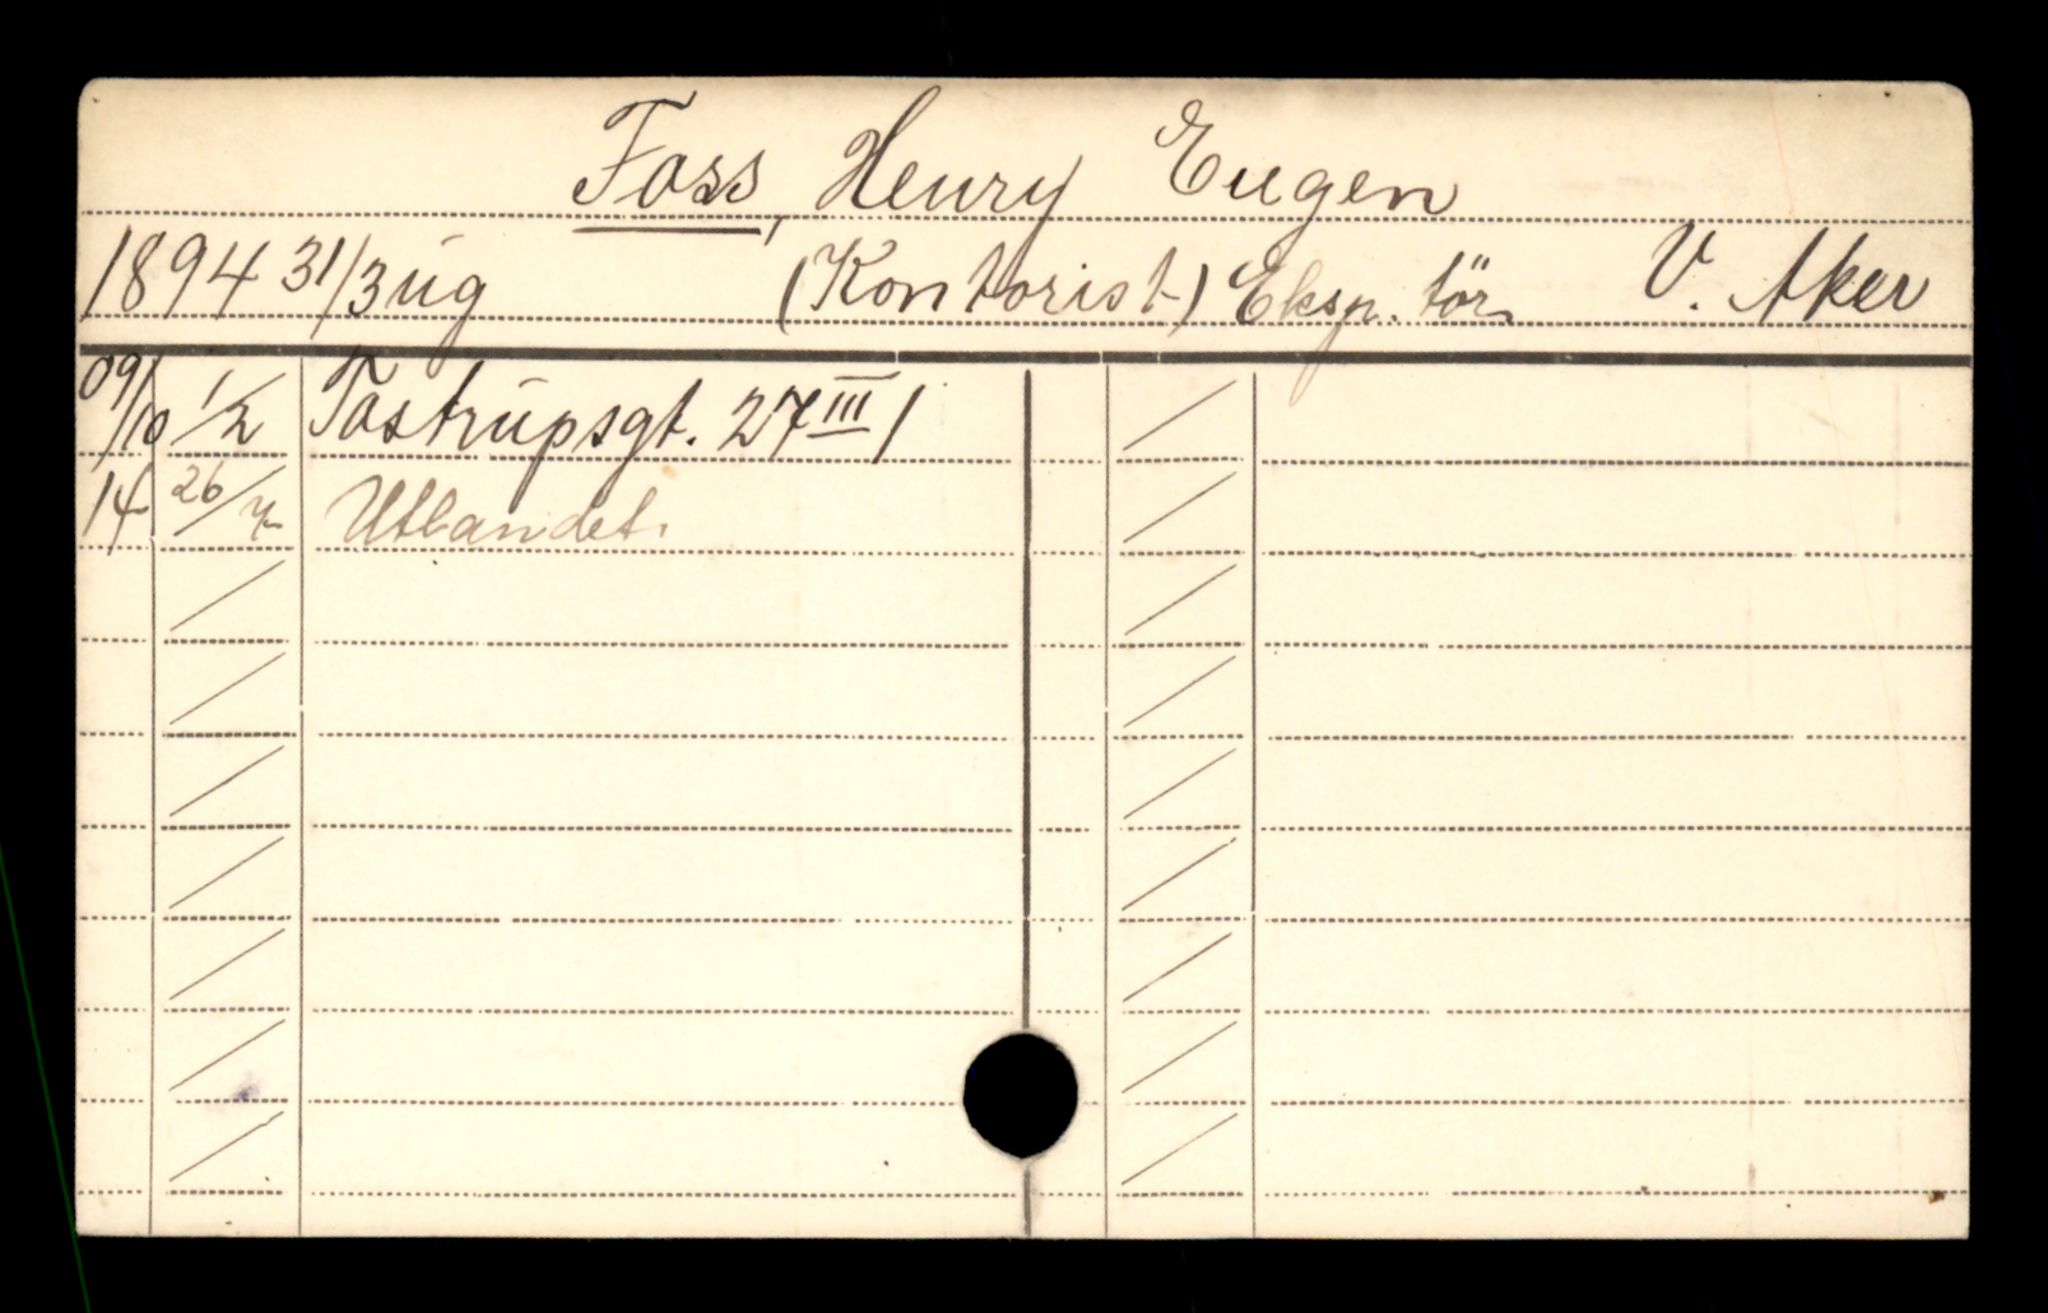 Foss, Henry Eugen
1894 31/3 ug (Kontorist) Eksp. tör. V. Aker
09/10 1/2 Tostrupsgt. 27 III /
14 26/7 Utlandet.